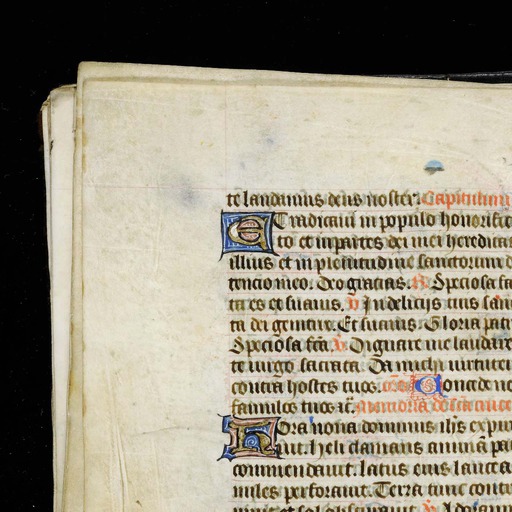 te laudamus deus noster. Capitulum
Et radicaui in populo honorific
to et in partes dei mei heredita
illius et in plenitudine sanctorum d
tencio mea. Deo gracias. R. Speciosa fa
ta es et suauis. V In delicijs tuis san
ta dei genitrix. Et suauis. Gloria patri
Speciosa fca. V. Dignare me laudare
te uirgo sacrata. Da michi uirtutem
contra hostes tuos. Concede no
famulos tuos
Hora nona dominus ihs expir
uit. heli clamans animam pa
commendauit. latus eius lancea
miles perforauit. Terra tunc contr
muit et sol obscurauit. V Adoram